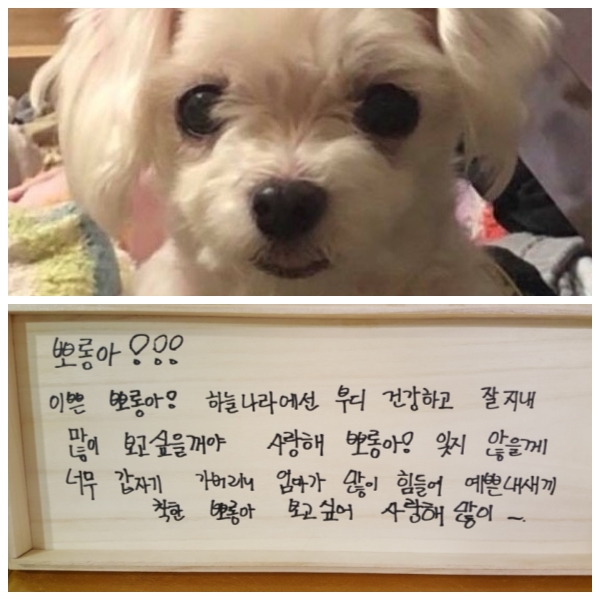 뽀롱아 !!!
이쁜 뽀롱아! 하늘나라에선 부디 건강하고 잘지내
많이 보고싶을꺼야 사랑해 뽀롱아! 잊지 않을게
너무 갑자기 가버리니 엄마가 많이 힘들어 예쁜내새끼
착한 뽀롱아 보고싶어 사랑해 많이 ~.